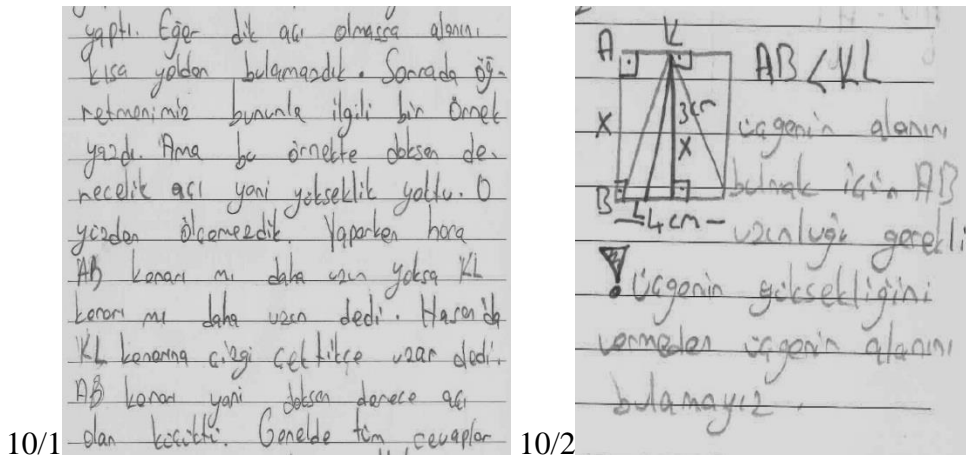 yaptı. Eğer dik açı olmassa alanını
kısa yoldan bulamazdık. Sonrada öğ-
retmenimiz bununla ilgili bir örnek
yazdı. Ama bu örnekte doksan de-
recelik açı yani yükseklik yoktu. O
yüzden ölçemezdik. Yaparken hoca
AB kenarı mı daha uzun yoksa KL
kenarı mı daha uzun dedi. Hasan'da
KL kenarına çizgi çektikçe uzar dedi.
AB kenarı yani doksan derece açı
olan küçüktü. Genelde tüm cevaplar
10/1
K
A
AB < KL
3cm
X
X
üçgenin alanını
B
bulmak için AB
L
4cm
uzunluğu gerekli
! Üçgenin yüksekliğini
vermeden üçgenin alanını
bulamayız.
10/2